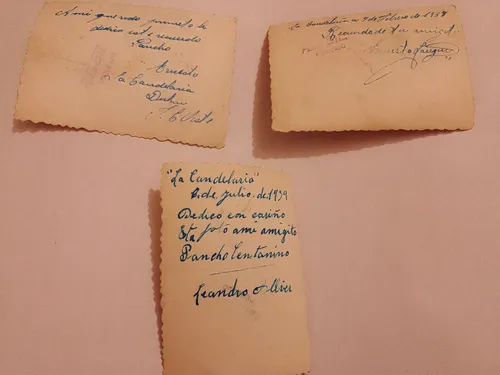 Ami querido primito le
dedico este recuerdo
Pancho
Ernesto
La Candelaria
La Candelaria 9 Febrero de 1939
Recuerdo de tu amigo
Ernesto
"La Candelaria"
6. de Julio. de. 1939
Dedico con cariño
Esta fotó ami amigito
Pancho Centanino
Leandro Olliei